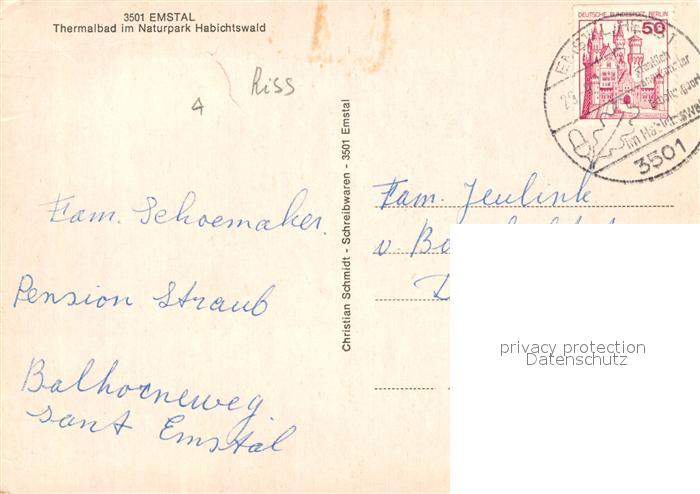 3501 EMSTAL
Thermalbad im Naturpark Habichtswald
Riss
Fam. Schoemaker.
Pension Straub
Balhorneweg.
sant Emstal
Christian Schmidt - Schreibwaren - 3501 Emstal
DEUTSCHE BUNDESPOST BERLIN
50
3501
Fam. Jeulink
v.
privacy protection
Datenschutz